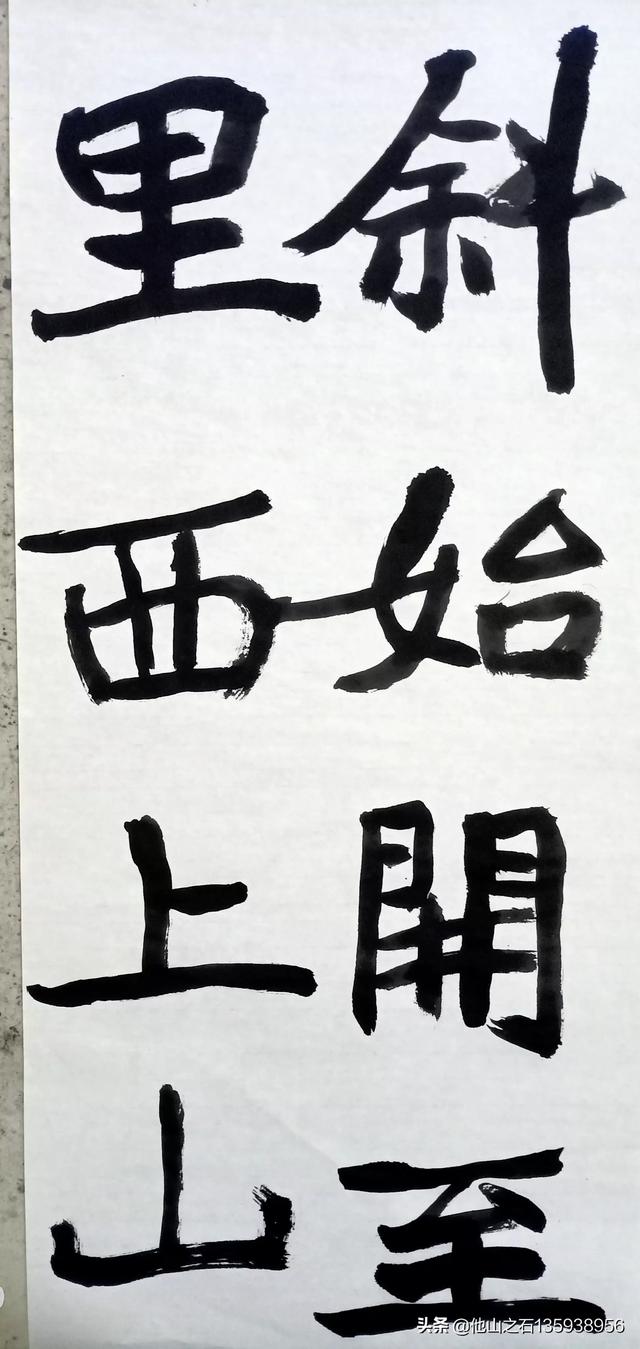 斜始開至
里西上山
头条 @他山之石135938956